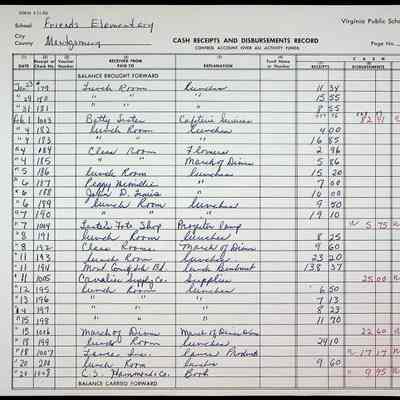 FORM A11-50
School Friends Elementary
Virginia Public Scho
City
County Montgomery
CASH RECEIPTS AND DISBURSEMENTS RECORD
CONTROL ACCOUNT OVER ALL ACTIVITY FUNDS
Page No.
(1) (2) (3) (4) (5) (6) (7) (8)
CASH
DATE Receipt or Check No. Voucher Number RECEIVED FROM PAID TO EXPLANATION Fund Name or Number RECEIPTS DISBURSEMENTS
BALANCE BROUGHT FORWARD
Jan 179 Lunch Room Lunches 11 34
" 180 " " " 15 55
" 31 181 " " " 8 55
Feb 1 1003 Betty Cafeteria 82 41
" 4 182 Lunch Room Lunches 4 00
" 4 183 " " " 16 85
" 4 184 Class Room Flowers 2 96
" 4 185 " " March of Dimes 5 86
" 5 186 Lunch Room Lunches 15 20
" 6 187 Peggy " 7 00
" 6 188 John D. Lewis " 10 00
" 6 189 Lunch Room Lunches 9 50
" 7 190 " " " 19 10
" 7 1004 Shop Projector Lamp 5 75
" 8 191 Lunch Room Lunches 8 25
" 8 192 Class Rooms March of Dimes 9 60
" 11 193 Lunch Room Lunches 23 20
" 11 194 Mont. Bd. Lunch 138 37
" 11 1005 Cavalier Supply Co. Supplies 25 00
" 12 195 Lunch Room Lunches 6 50
" 13 196 " " " 7 13
197 " " " 8 23
" 15 198 " " " 11 70
" 15 1006 March of Dimes March of Dimes 22 60
" 18 199 Lunch Room Lunches 24 10
" 18 1007 Inc. Products 17 17
" 20 200 Lunch Room Lunches 9 60
" 20 1008 C. S. Hammond & Co. Book 9 95
BALANCE CARRIED FORWARD